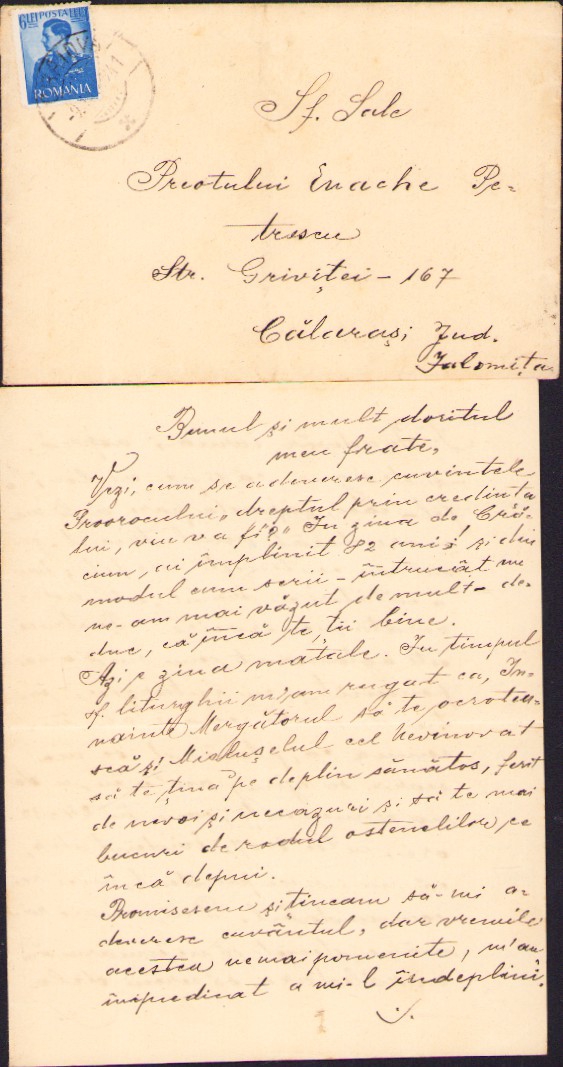 6 LEI POSTA LEI 6
ROMANIA
Sf. Sale
Preotului Enache Pe-
trescu
Str. Griviței - 167
Călarași Jud.
Ialomița
Bunul și mult doritul
meu frate,
Vezi, cum se adeveresc cuvintele
Proorocului „dreptul prin credința
lui, viu va fi?" In ziua de Cră-
ciun, ai împlinit 82 ani! și din
modul cum scrii - întrucât nu
ne-am mai văzut demult - de-
duc, că încă te ții bine.
Azi e ziua matale. In timpul
sf. liturghii m'am rugat ca, In-
nainte Mergătorul să te ocroteas-
scă și Mielușelul cel Nevinovat
să te țină pe deplin sănătos, ferit
de nevoi și necazuri și să te mai
bucuri de rodul ostenelilor ce
încă depui.
Promisesem și țineam să-mi a-
deveresc cuvântul, dar vremile
acestea nemaipomenite, m'au
împedicat a mi-l îndeplini.